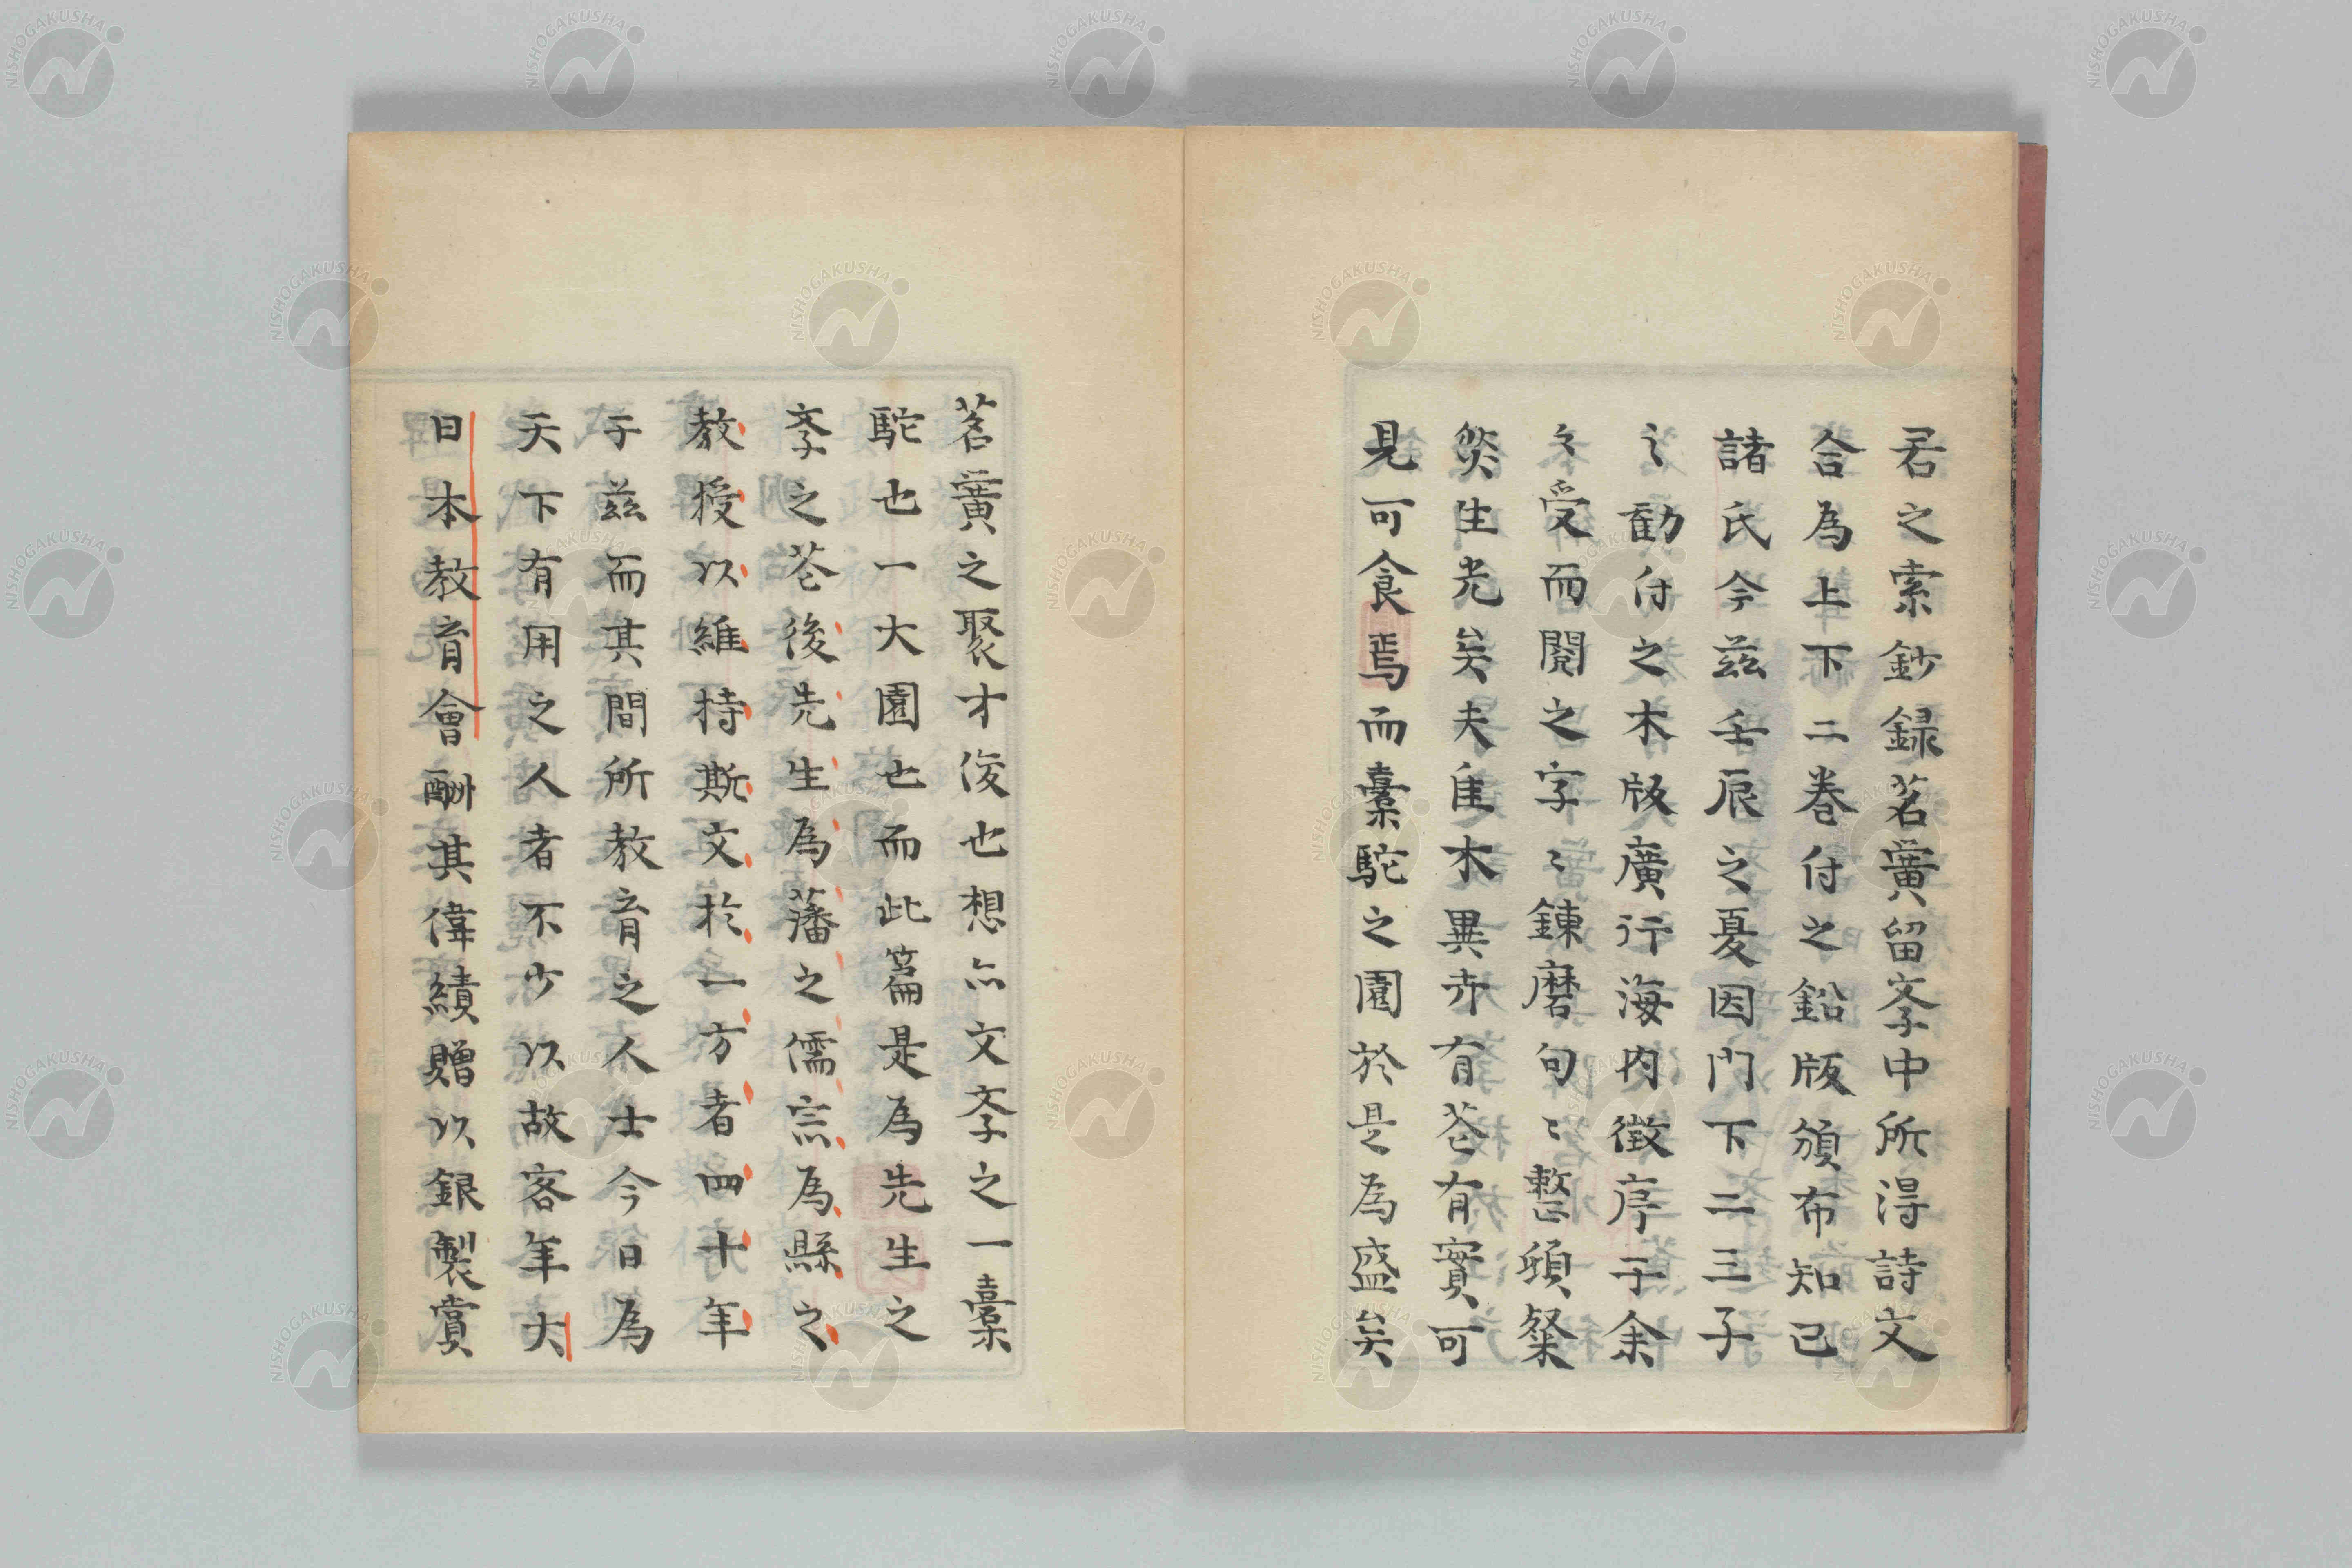 君之索鈔録茗黌留斈中所淂詩文
合為上下二巻付之鉛版頒布知己
諸氏今茲壬辰之夏因門下二三子
〻勧付之木版廣行海内徴序于余
〻受而閲之字〻錬磨句〻整頓粲
然生光矣夫佳木異卉有苍有實可
見可食焉而槖駝之園於是為盛矣
茗黌之聚才俊也想亦文斈之一槖
駝也一大園也而此篇是為先生之
斈之苍後先生為藩之儒宗為縣之
教授以維持斯文於一方者四十年
于茲而其間所教育之人士今日為
天下有用之人者不少以故客年大
日本教育會酬其偉績贈以銀製賞
NISHOGAKUSHA